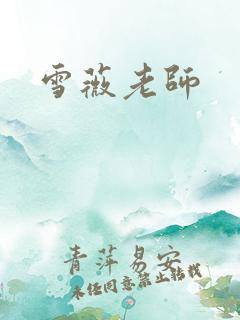 雪薇老師
青萍易安
未经同意禁止转载